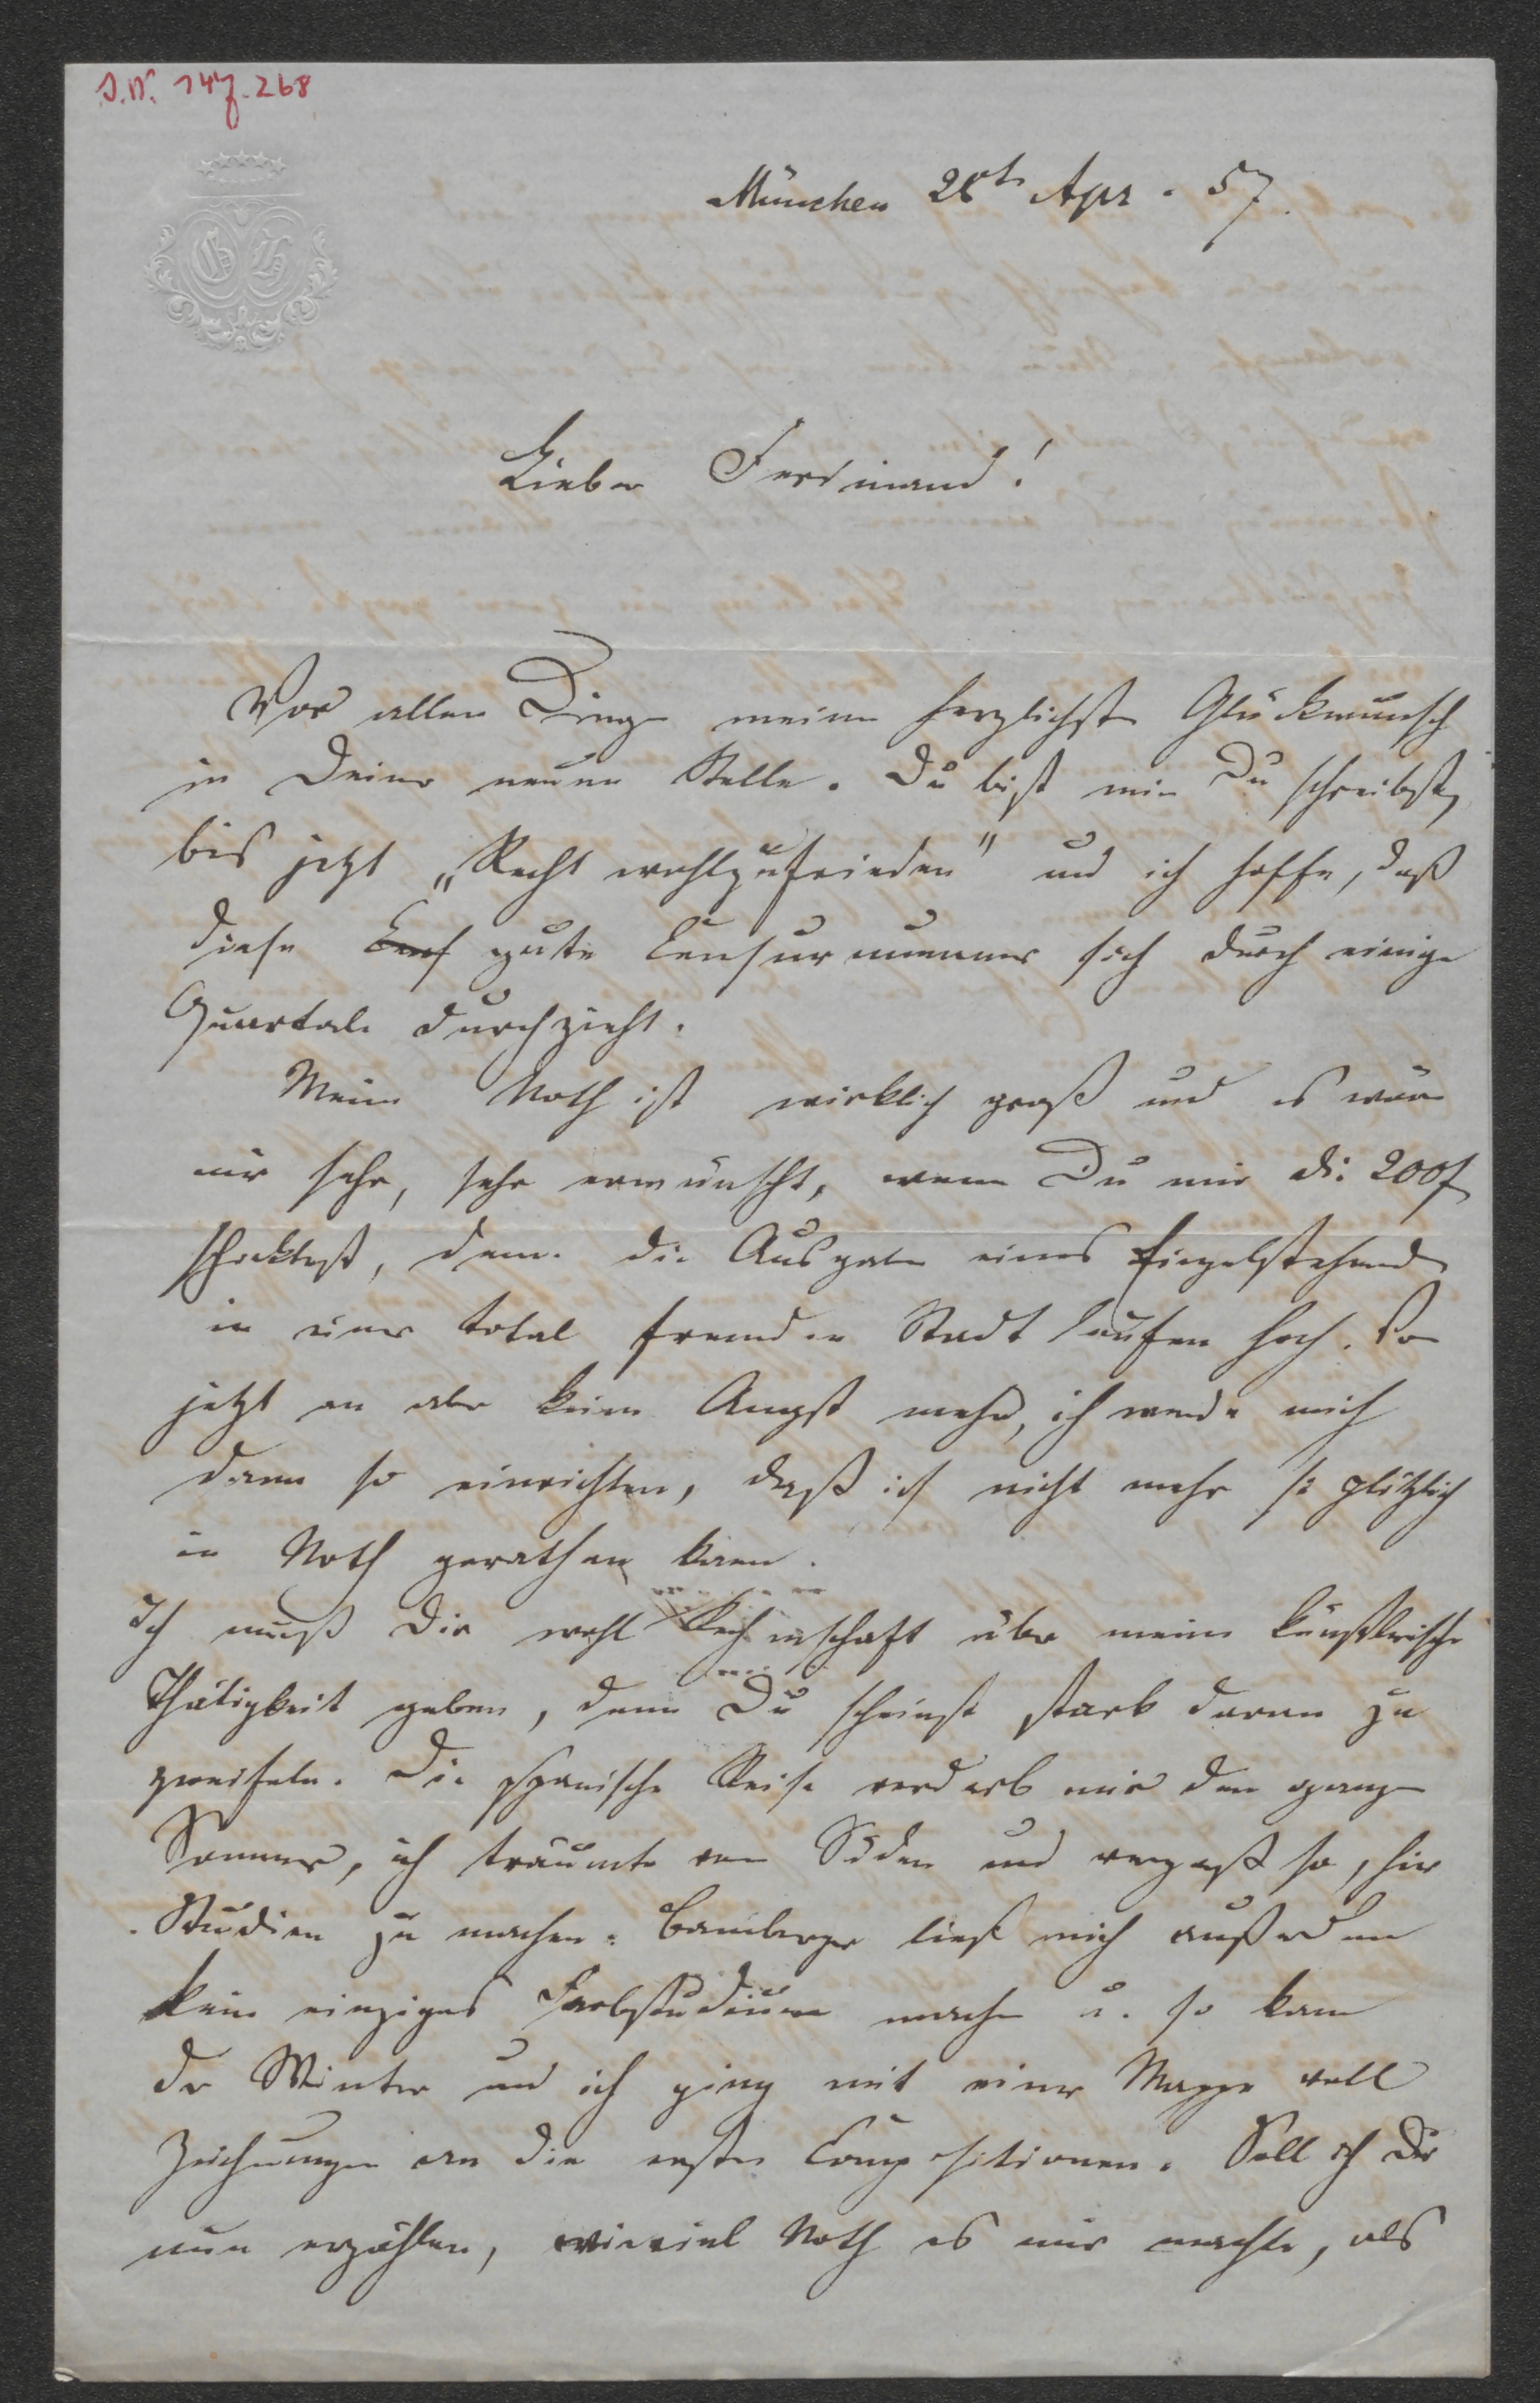 J.N. 147.268
G L
München 28t Apr. 57.
Lieber Ferdinand!
Vor allen Dinge meinen herzlichsten Glückwunsch
in Deiner neuen Stelle. Du bist wie Du schreibst,
bis jetzt „Recht wohlzufrieden" und ich hoffe, daß
diese gute Censurnummer sich durch einige
Quartale durchzieht.
Meine Noth ist wirklich groß und es wäre
mir sehr, sehr erwünscht, wenn Du mir die 200f
schicktest, denn die Ausgaben eines Einzelstehenden
in einer total fremden Stadt laufen hoch. Von
jetzt an aber keine Angst mehr, ich werde mich
dann so einrichten, daß ich nicht mehr so plötzlich
in Noth gerathen kann.
Ich muß Dir wohl Rechenschaft über meine künstlerische
Thätigkeit geben, denn Du scheinst stark daran zu
zweifeln. Die spanische Reise verdarb mir den ganzen
Sommer, ich träumte vom Süden und vergaß so, hier
Studien zu machen. Bamberger ließ mich außerdem
kein einziges Farbstudium machen u. so kam
der Winter und ich ging mit einer Mappe voll
Zeichnungen an die ersten Compositionen. Soll ich Dir
nun erzählen, wieviel Noth es mir machte, als